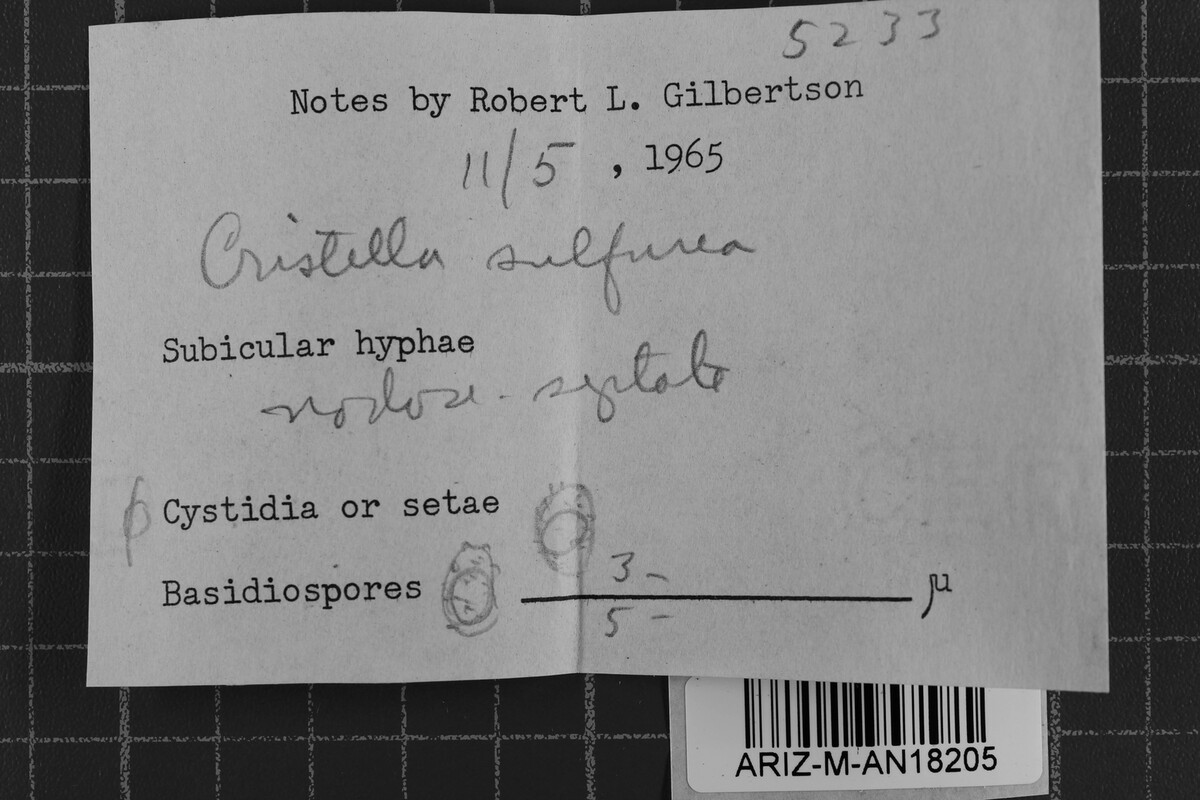 5233
Notes by Robert L. Gilbertson
11/5, 1965
Cristella sulfurea
Subicular hyphae
nodose-septate
Cystidia or setae
Basidiospores
3-
5-
µ
ARIZ-M-AN18205